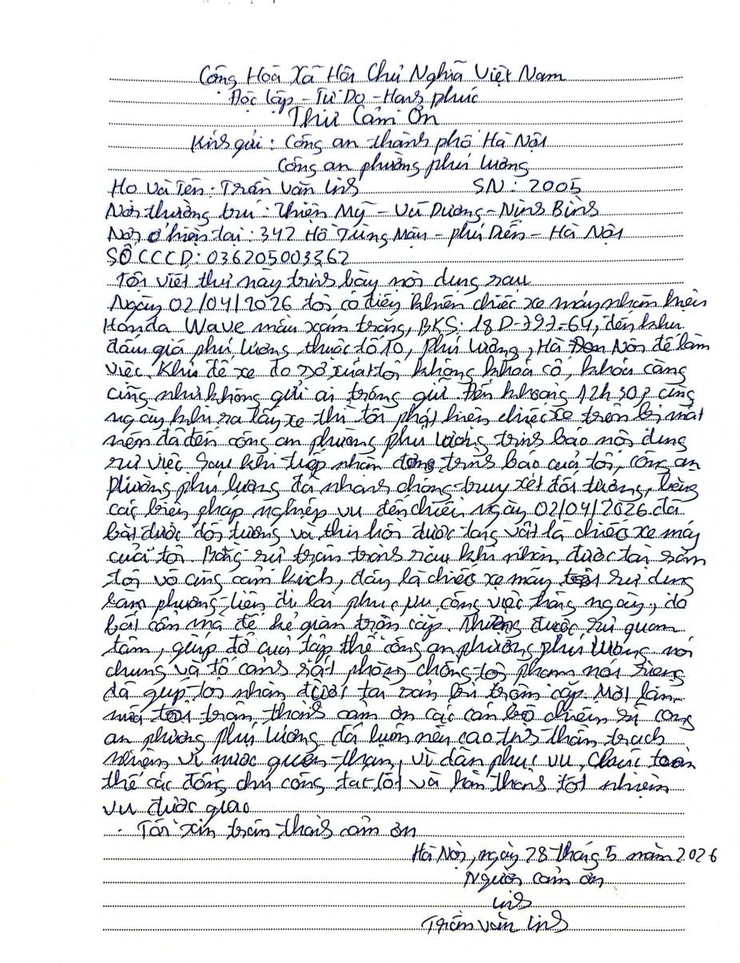 Cộng Hoà Xã Hội Chủ Nghĩa Việt Nam
Độc lập - Tự Do - Hạnh phúc
Thư Cảm Ơn
Kính gửi: Công an thành phố Hà Nội
Công an phường phú lương
Họ và tên: Trần Văn Linh SN: 2005
Nơi thường trú: Thiện Mỹ - Vũ Dương - Ninh Bình
Nơi ở hiện tại: 342 Hồ Tùng Mậu - phú Diễn - Hà Nội
SỐ CCCD: 036205003262
Tôi viết thư này trình bày nội dung sau
Ngày 02/04/2026 tôi có điều khiển chiếc xe máy nhãn hiệu
Honda Wave màu xám trắng, BKS: 18D-797-64, đến khu
đấu giá phú lương thuộc tổ 10, phú Lương, Hà Nội để làm
việc. Khi để xe do sơ xuất tôi không khoá cổ, khoá càng
cũng như không gửi ai trông giữ. Đến khoảng 12h30p cùng
ngày khi ra lấy xe thì tôi phát hiện chiếc xe trên bị mất
nên đã đến công an phường phú Lương trình báo nội dung
sự việc. Sau khi tiếp nhận đơn trình báo của tôi, công an
phường phú lương đã nhanh chóng truy xét đối tượng, bằng
các biện pháp nghiệp vụ đến chiều ngày 02/04/2026 đã
bắt được đối tượng và thu hồi được tang vật là chiếc xe máy
của tôi. Bằng sự trân trọng sau khi nhận được tài sản
tôi vô cùng cảm kích, đây là chiếc xe máy tôi sử dụng
làm phương tiện đi lại phục vụ công việc hàng ngày, do
bất cẩn mà để kẻ gian trộm cắp. Nhưng được sự quan
tâm, giúp đỡ của tập thể công an phường phú Lương nói
chung và tổ cảnh sát phòng chống tội phạm nói riêng
đã giúp tôi nhận được tài sản bị trộm cắp. Một lần
nữa tôi trân thành cảm ơn các cán bộ chiến sĩ công
an phường phú Lương đã luôn nêu cao tinh thần trách
nhiệm vì nước quên thân, vì dân phục vụ, chúc toàn
thể các đồng chí công tác tốt và hoàn thành tốt nhiệm
vụ được giao
Tôi xin trân thành cảm ơn
Hà Nội, ngày 28 tháng 5 năm 2026
Người cảm ơn
Linh
Trần Văn Linh